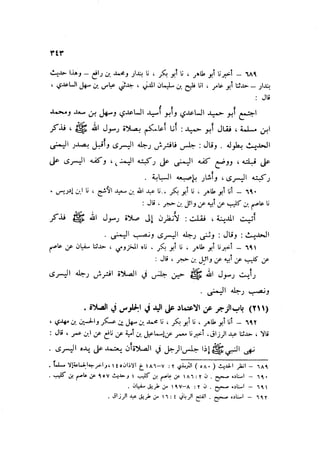 ٣٤٣
٦٨٩ — أخبرنا أبو طاهر، نا أبو بكر، نا بندار ومحمد بن رافع — وهذا حديث
بندار — حدثنا أبو عامر، أنا فليح بن سليمان المدني، حدثني عباس بن سهل الساعدي،
قال :
اجتمع أبو حميد الساعدي وأبو أسيد الساعدي وسهل بن سعد ومحمد
ابن مسلمة، فقال أبو حميد : أنا أعلمكم بصلاة رسول الله ﷺ، فذكر
الحديث بطوله . وقال : جلس فافترش رجله اليسرى وأقبل بصدر اليمنى
على قبلته، ووضع كفه اليمنى على ركبته اليمنى، وكفه اليسرى على
ركبته اليسرى، وأشار بإصبعه السبابة .
٦٩٠ — أنا أبو طاهر، نا أبو بكر، نا عبد الله بن سعيد الأشج، نا ابن إدريس،
نا عاصم بن كليب عن أبيه عن وائل بن حجر، قال :
أتيت المدينة، فقلت : لأنظرن إلى صلاة رسول الله ﷺ فذكر
الحديث : وقال : وثنى رجله اليسرى ونصب اليمنى .
٦٩١ — أخبرنا أبو طاهر، نا أبو بكر، نا المخزومي، حدثنا سفيان عن عاصم
بن كليب عن أبيه عن وائل بن حجر، قال :
رأيت رسول الله ﷺ حين جلس في الصلاة افترش رجله اليسرى
ونصب رجله اليمنى .
(٢١١) باب الزجر عن الاعتماد على اليد في الجلوس في الصلاة .
٦٩٢ — أنا أبو طاهر، نا أبو بكر، نا محمد بن سهل بن عسكر والحسين بن مهدي،
قالا، حدثنا عبد الرزاق، أخبرنا معمر عن إسماعيل بن أمية عن نافع عن ابن عمر، قال :
نهى النبي ﷺ إذا جلس الرجل في الصلاة أن يعتمد على يده اليسرى .
٦٨٩ — انظر الحديث (٥٨٠) الترمذي ٢ : ٧-١٨٦
٦٩٠ — اسناده صحيح . ن ٢ : ١٨٦ عن عاصم بن كليب
٦٩١ — اسناده صحيح . ن ٢ : ٨-١٩٧ من طريق سفيان .
٦٩٢ — اسناده صحيح . الفتح الرباني ٤ : ١٦ من طريق عبد الرزاق .